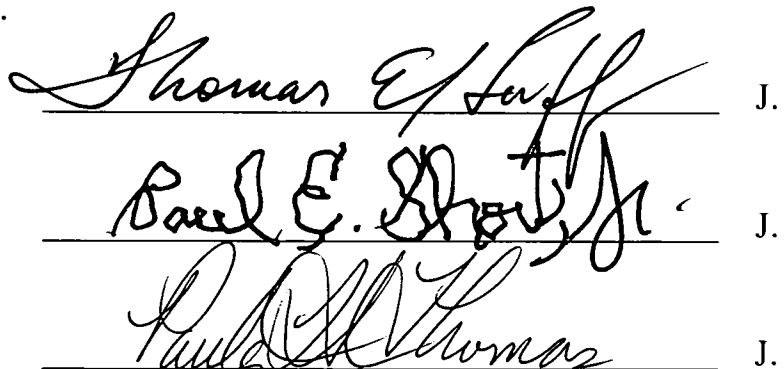 .
Thomas E J.
Paul E. Short, Jr. J.
Paula Thomas J.